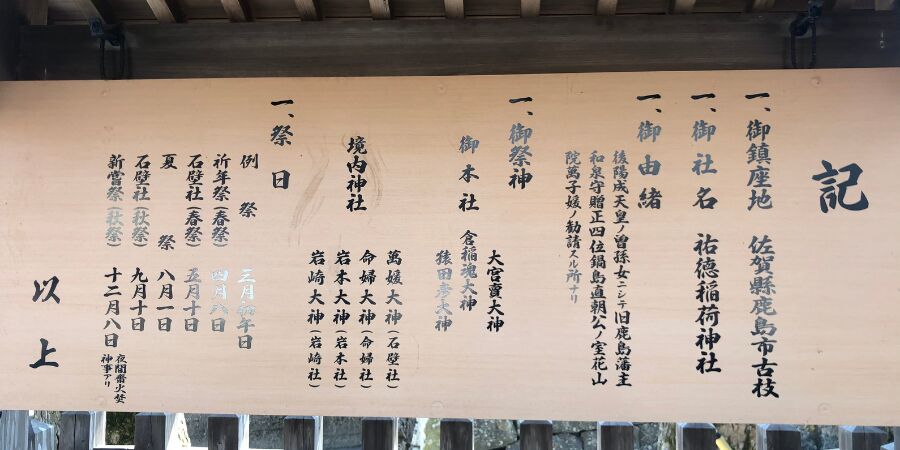 記
一、御鎮座地 佐賀縣鹿島市古枝
一、御社名 祐徳稲荷神社
一、御由緒
後陽成天皇ノ曽孫女ニシテ旧鹿島藩主
和泉守贈正四位鍋島直朝公ノ室花山
院萬子媛ノ勧請スル所ナリ
一、御祭神
大宮賣大神
御本社 倉稲魂大神
猿田彦大神
境内神社
萬媛大神(石壁社)
命婦大神(命婦社)
岩本大神(岩本社)
岩崎大神(岩崎社)
一、祭日
例祭 三月初午日
祈年祭(春祭) 四月八日
石壁社(春祭) 五月十日
夏祭 八月一日
石壁社(秋祭) 九月十日
新嘗祭(秋祭) 十二月八日 夜間番火焚
神事アリ
以上